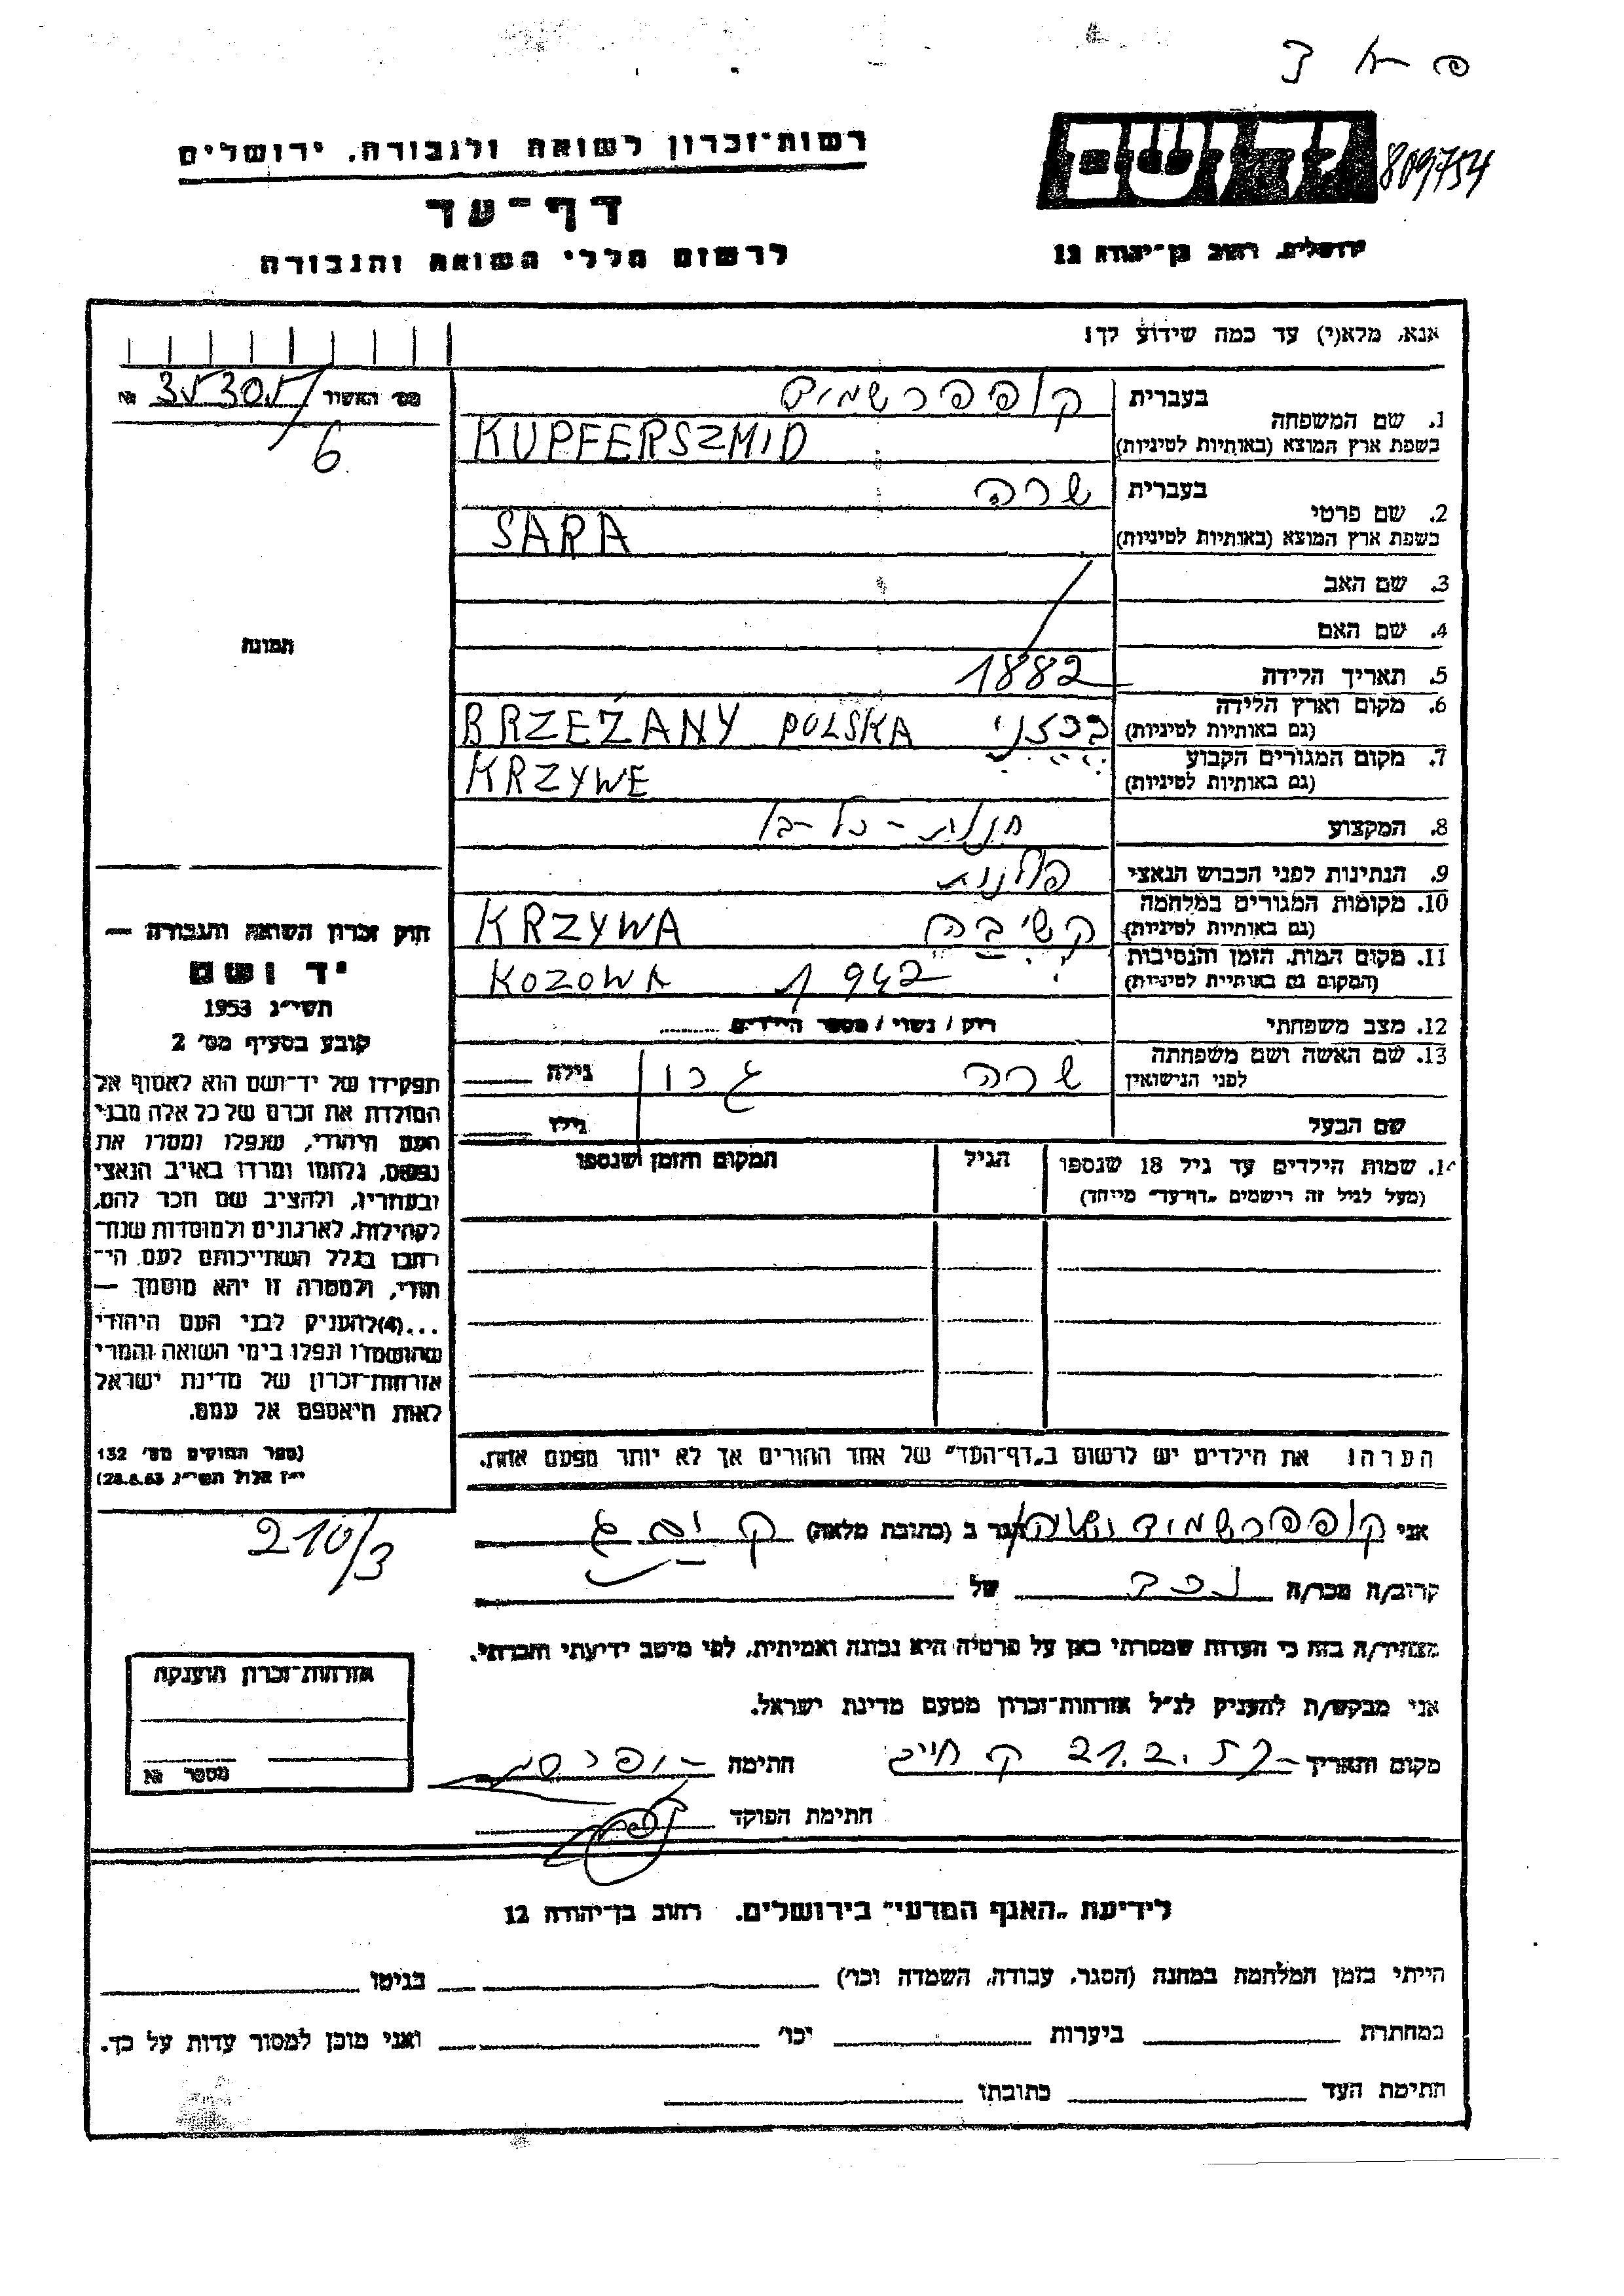 רשות־זכרון לשואה ולגבורה, ירושלים
דף־עד
לרשום חללי השואה והגבורה
יד ושם
809754
ירושלים, רחוב בן־יהודה 12
אנא, מלא(י) עד כמה שידוע לך:
מס׳ האשור 35305/6 №
תמונה
1. שם המשפחה
בעברית קופפרשמיד
בשפת ארץ המוצא (באותיות לטיניות) KUPFERSZMID
2. שם פרטי
בעברית שרה
בשפת ארץ המוצא (באותיות לטיניות) SARA
3. שם האב
4. שם האם
5. תאריך הלידה 1882
6. מקום וארץ הלידה
(גם באותיות לטיניות) ברזני BRZEŻANY POLSKA
7. מקום המגורים הקבוע
(גם באותיות לטיניות) KRZYWE
8. המקצוע חנות-כל-בו
9. הנתינות לפני הכבוש הנאצי פולנית
10. מקומות המגורים במלחמה
(גם באותיות לטיניות) קשיבה KRZYWA
11. מקום המות, הזמן והנסיבות
(המקום גם באותיות לטיניות) 1942 KOZOWA
12. מצב משפחתי רוק / נשוי / מספר הילדים
13. שם האשה ושם משפחתה
לפני הנישואין שרה גילה
שם הבעל גילו
14. שמות הילדים עד גיל 18 שנספו
(מעל לגיל זה רישמים „דף־עד״ מייחד)
הגיל
המקום והזמן שנספו
הערה: את הילדים יש לרשום ב„דף־העד״ של אחד ההורים אך לא יותר מפעם אחת.
חוק זכרון השואה והגבורה —
יד ושם
תשי״ג 1953
קובע בסעיף מס׳ 2
תפקידו של יד־ושם הוא לאסוף אל
המולדת את זכרם של כל אלה מבני
העם היהודי, שנפלו ומסרו את
נפשם, נלחמו ומרדו באויב הנאצי
ובעוזריו, ולהציב שם וזכר להם,
לקהילות, לארגונים ולמוסדות שנח־
רבו בגלל השתייכותם לעם הי־
הודי, ולמטרה זו יהא מוסמך —
...(4)להעניק לבני העם היהודי
שהושמדו ונפלו בימי השואה והמרי
אזרחות־זכרון של מדינת ישראל
לאות היאספם אל עמם.
(ספר החוקים מס׳ 132
י״ז אלול תשי״ג 28.8.53)
210/3
אני קופפרשמיד הגר ב (כתובת מלאה)
קרוב/ה מכר/ה נכד של
מצהיר/ה בזה כי העדות שמסרתי כאן על פרטיה היא נכונה ואמיתית, לפי מיטב ידיעתי והכרתי.
אני מבקש/ת להעניק לנ״ל אזרחות־זכרון מטעם מדינת ישראל.
מקום ותאריך ק חיים 21.2.57 חתימה
חתימת הפוקד
אזרחות־זכרון הוענקה
מספר №
לידיעת „האגף המדעי״ בירושלים, רחוב בן־יהודה 12
הייתי בזמן המלחמה במחנה (הסגר, עבודה, השמדה וכו׳) בגיטו
במחתרת ביערות וכו׳ ואני מוכן למסור עדות על כך.
חתימת העד כתובתו